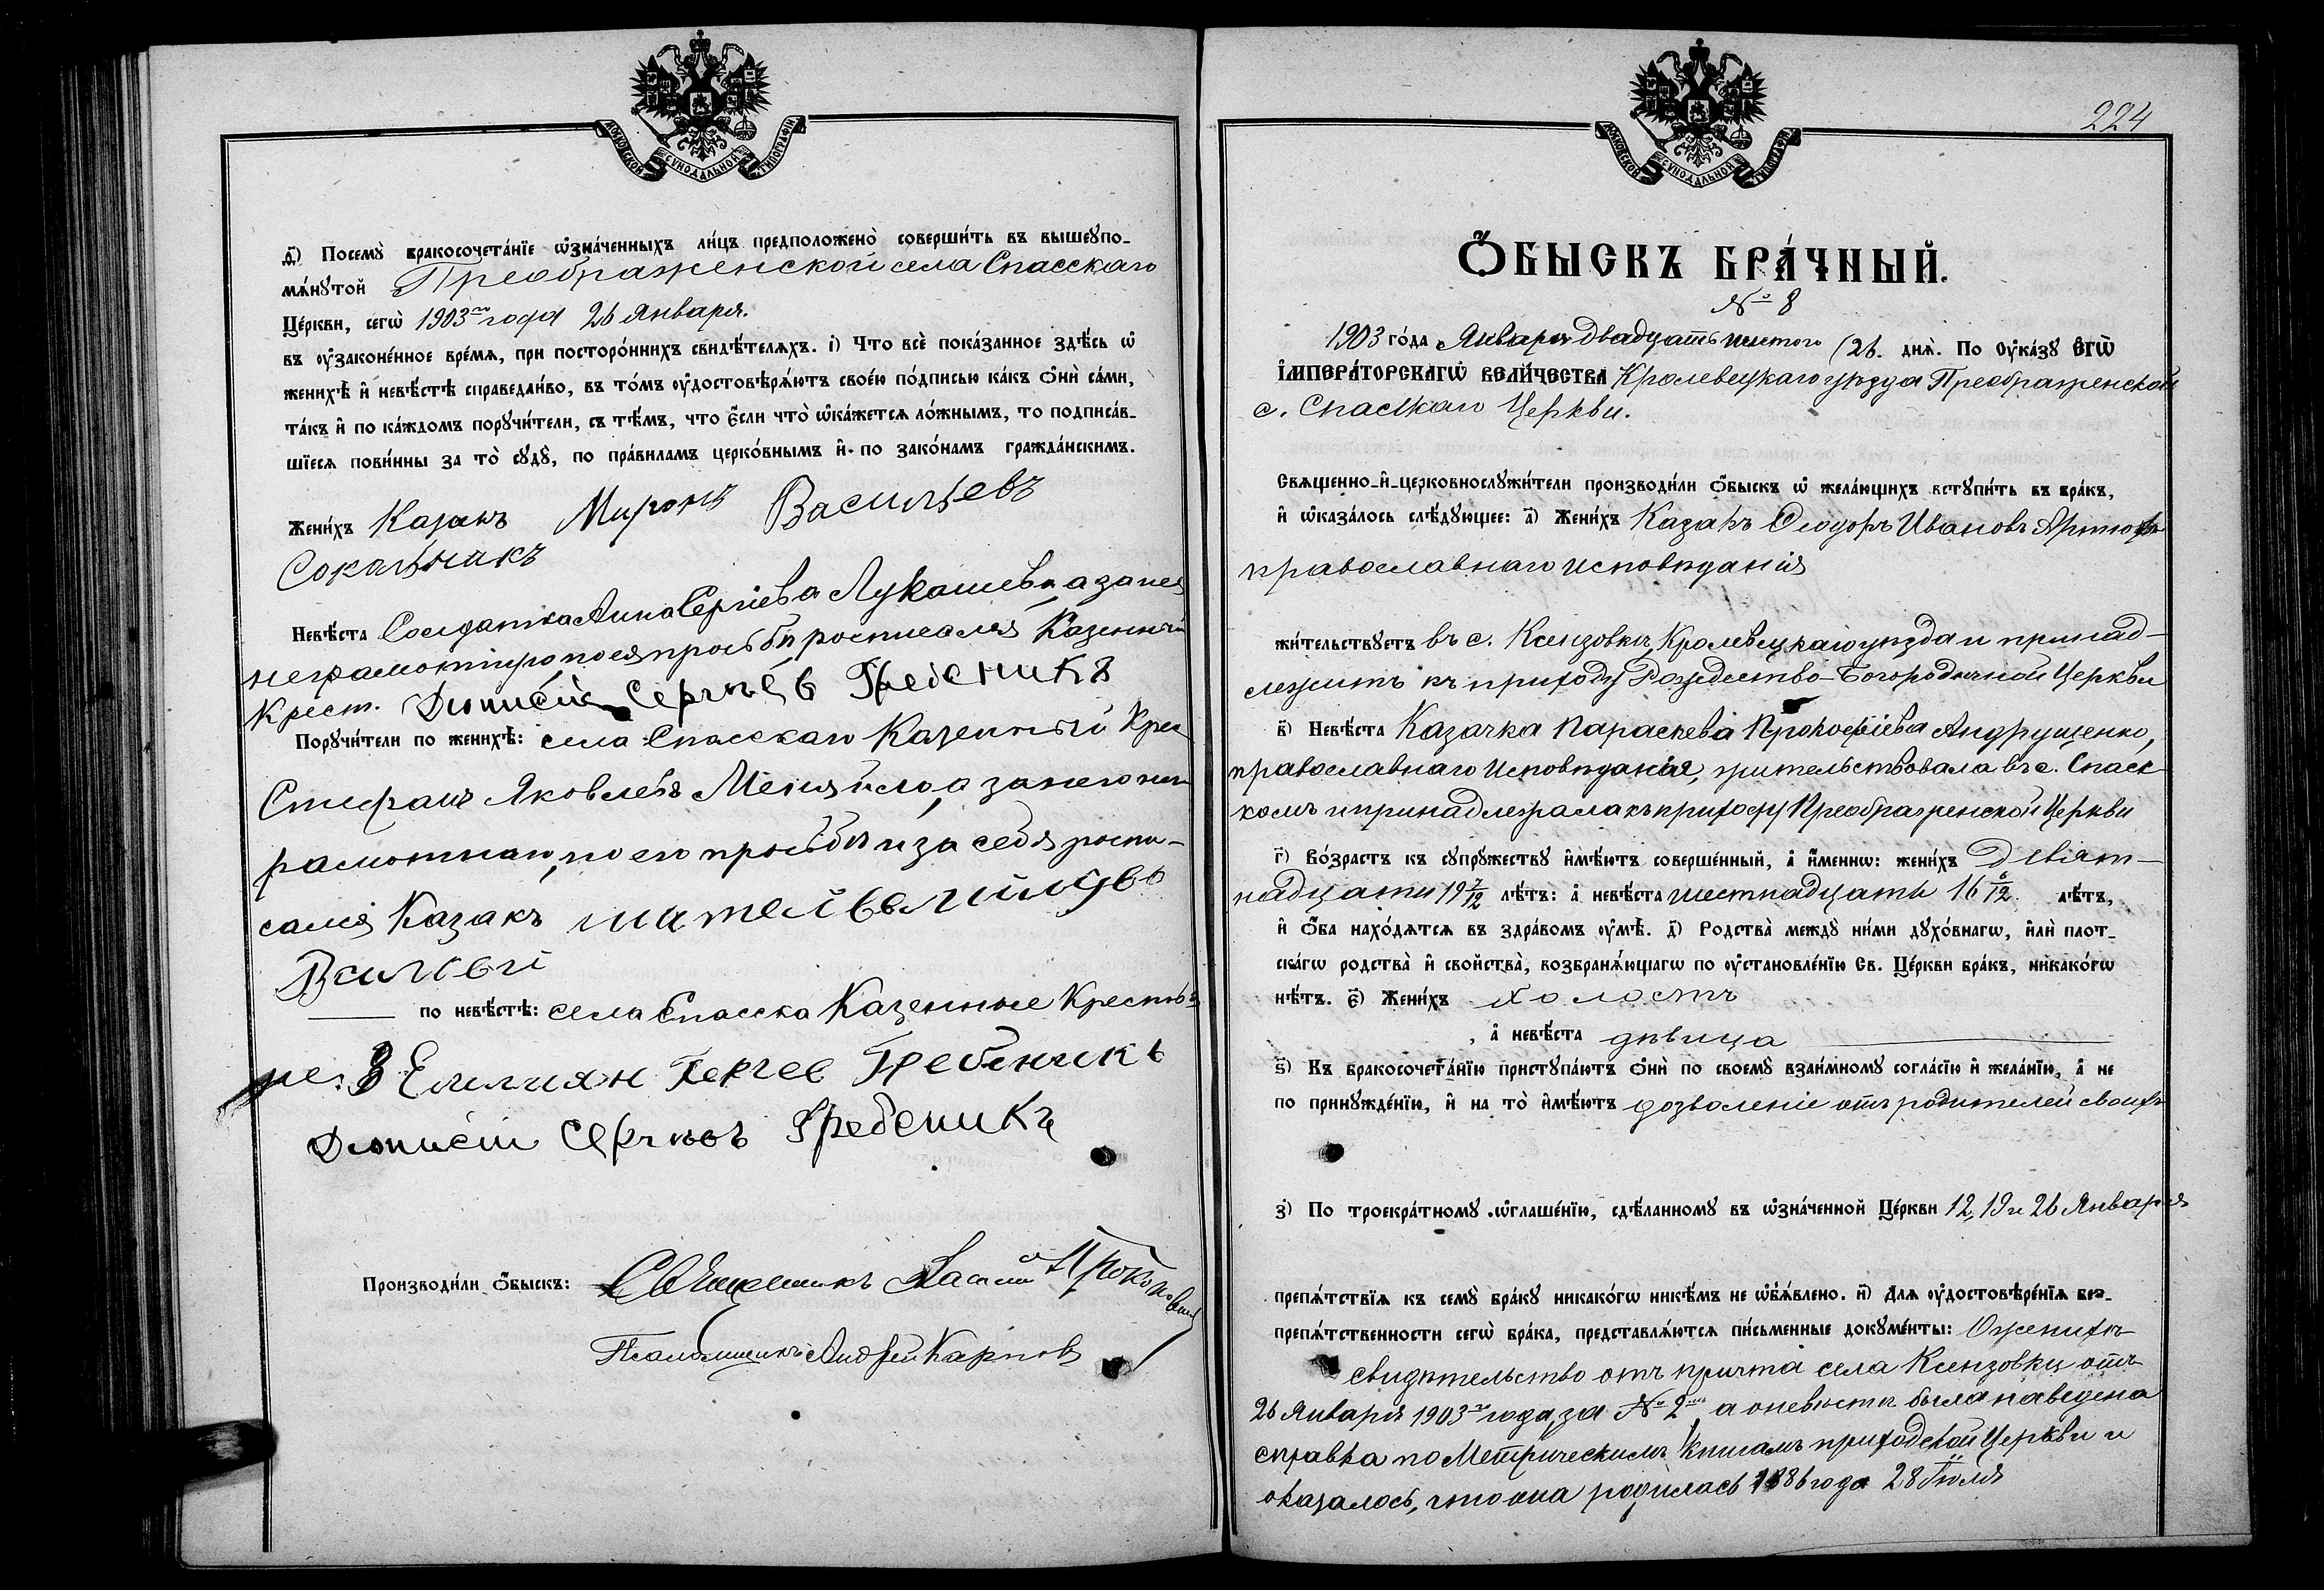 МОСКОВСКОЙ СУНОДАЛЬНОЙ ТИПОГРАФІИ
д҃) Посемꙋ̀ бракосочета́нїе ѡ҆зна́ченныхъ ли́цъ предположено̀ соверши́ть въ вышеꙋпо-
мѧ́нꙋтой Преображенской села Спасскаго
Це́ркви, сегѡ̀ 1903го года 26 Января.
въ ᲂу҆законе́нное вре́мѧ, при посторо́ннихъ свидѣ́телѧхъ. і҃) Что всѐ пока́занное здѣ́сь ѡ҆
женихѣ̀ и҆ невѣ́стѣ справедли́во, въ то́мъ ᲂу҆достовѣрѧ́ютъ свое́ю по́дписью ка́къ ѻ҆нѝ са́ми,
та́къ и҆ по ка́ждомъ порꙋчи́тели, съ тѣ́мъ, что є҆́сли что̀ ѡ҆ка́жетсѧ ло́жнымъ, то подписа́в-
шїесѧ пови́нны за то̀ сꙋдꙋ̀, по пра́виламъ церко́внымъ и҆ по зако́намъ гражда́нскимъ.
Жени́хъ Казакъ Миронъ Васильевъ
Сокальникъ
Невѣ́ста Солдатка Анна Сергіева Лукашевa, а за нея
неграмотную, по ея прозьбѣ росписался Казенный
Крест. Діонисій Сергѣевъ Гребеникъ
Порꙋчи́тели по женихѣ̀: села Спасскаго Казенный Крес
Стефанъ Яковлевъ а за него нег
рамотнаго, по его прозьбѣ и за себя роспи-
сался Казакъ
по невѣ́стѣ: села Спасска Казенные Крестья
не: Емилиян Сергеев Гребеникъ
Дионисій Сергѣевъ Гребеникъ
Производи́ли ѻ҆́быскъ: Священникъ Прокопович
Псаломщикъ Андрей Карпов
224
МОСКОВСКОЙ СУНОДАЛЬНОЙ ТИПОГРАФІИ
Ѻ҆́БЫСКЪ БРА́ЧНЫЙ.
№ 8
1903 го́да Января двадцать шестого (26. днѧ̀. По ᲂу҆ка́зꙋ Є҆ГѠ̀
І҆МПЕРА́ТОРСКАГѠ ВЕЛИ́ЧЕСТВА Кролевецкаго уѣзда Преображенской
с. Спасскаго Церкви.
Свѧщенно-и҆-церковнослꙋжи́тели производи́ли ѻ҆́быскъ ѡ҆ жела́ющихъ встꙋпи́ть въ бра́къ,
и҆ ѡ҆каза́лось слѣ́дꙋющее: а҃) Жени́хъ Казакъ Ѳеодоръ Ивановъ Артюхъ
православнаго исповѣданія
жи́тельствꙋетъ въ с. Ксензовкѣ, Кролевецкаго уѣзда и принад-
лежитъ къ приходу Рождество-Богородичной Церкви
в҃) Невѣ́ста Казачка Параскева Прокофіева Андрущенко,
православнаго Исповѣданія, жительствовала въ с. Спаск
комъ и принадлежала къ приходу Преображенской Церкви
г҃) Во́зрастъ къ сꙋпрꙋ́жествꙋ и҆мѣ́ютъ соверше́нный, а҆ и҆́меннѡ: жени́хъ Девят-
надцати 19 7/12 лѣ́тъ: а҆ невѣ́ста шестнадцати 16 6/12 лѣ́тъ,
и҆ ѻ҆́ба нахо́дѧтсѧ въ здра́вомъ ᲂу҆мѣ̀. д҃) Родства̀ междꙋ̀ ни́ми дꙋхо́внагѡ, и҆лѝ плот-
ска́гѡ родства̀ и҆ свойства̀, возбранѧ́ющагѡ по ᲂу҆становле́нїю Св. Це́ркви бра́къ, никако́гѡ
нѣ́тъ. є҃) Жени́хъ холостъ
, а҆ невѣ́ста дѣвица
ѕ҃) Къ бракосочета́нїю пристꙋпа́ютъ ѻ҆нѝ по своемꙋ̀ взаи́мномꙋ согла́сїю и҆ жела́нїю, а҆ не
по принꙋжде́нїю, и҆ на то̀ и҆мѣ́ютъ дозволеніе отъ родителей своихъ
з҃) По троекра́тномꙋ ѡ҆глаше́нїю, сдѣ́ланномꙋ въ ѡ҆зна́ченной Це́ркви 12, 19 и 26 Января
препѧ́тствїѧ къ семꙋ̀ бра́кꙋ никако́гѡ никѣ́мъ не ѡ҆б̾ѧ́влено. и҃) Длѧ ᲂу҆достовѣре́нїѧ без-
препѧ́тственности сегѡ̀ бра́ка, представлѧ́ютсѧ пи́сьменные докꙋме́нты: О женихѣ
свидѣтельство отъ причта села Ксензовки отъ
26 Января 1903го года, за № 2мъ а о невѣстѣ была наведена
справка по Метрическимъ книгамъ приходской Церкви и
оказалось, что она родилась 1886 года 28 Іюля